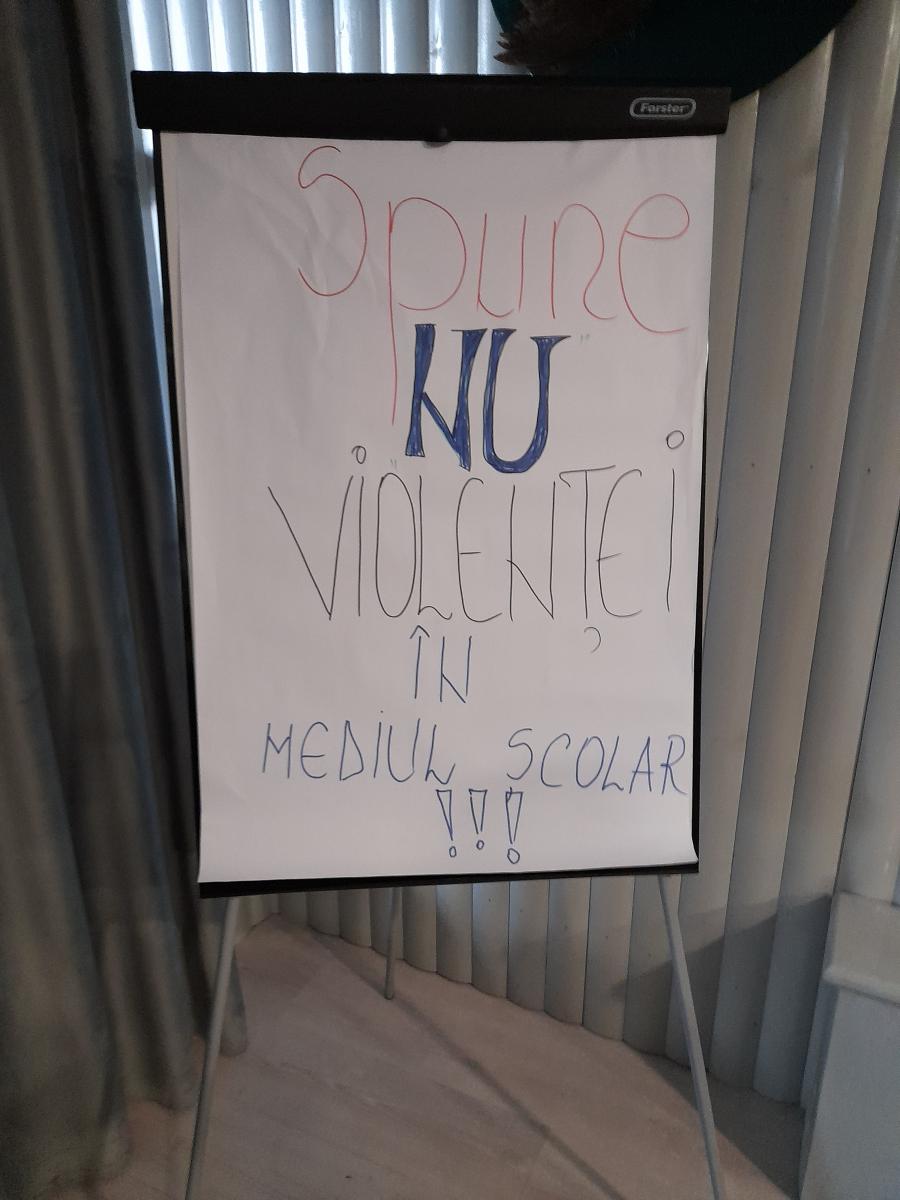 Forster
Spune
NU
VIOLENȚEI
ÎN
MEDIUL ȘCOLAR
!!!